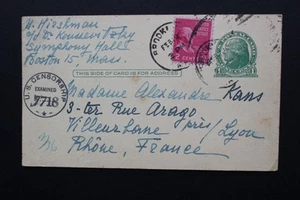 A. Hirshman
c/o D. Koussevitzky
Symphony Hall
Boston 15, Mass.
BROOKL
FEB
2 CENTS
THIS SIDE OF CARD IS FOR ADDRESS
U.S. CENSORSHIP
EXAMINED
7718
Madame Alexandre Kans
3-ter Rue Arago
Villeurbane près/Lyon
Rhône, France